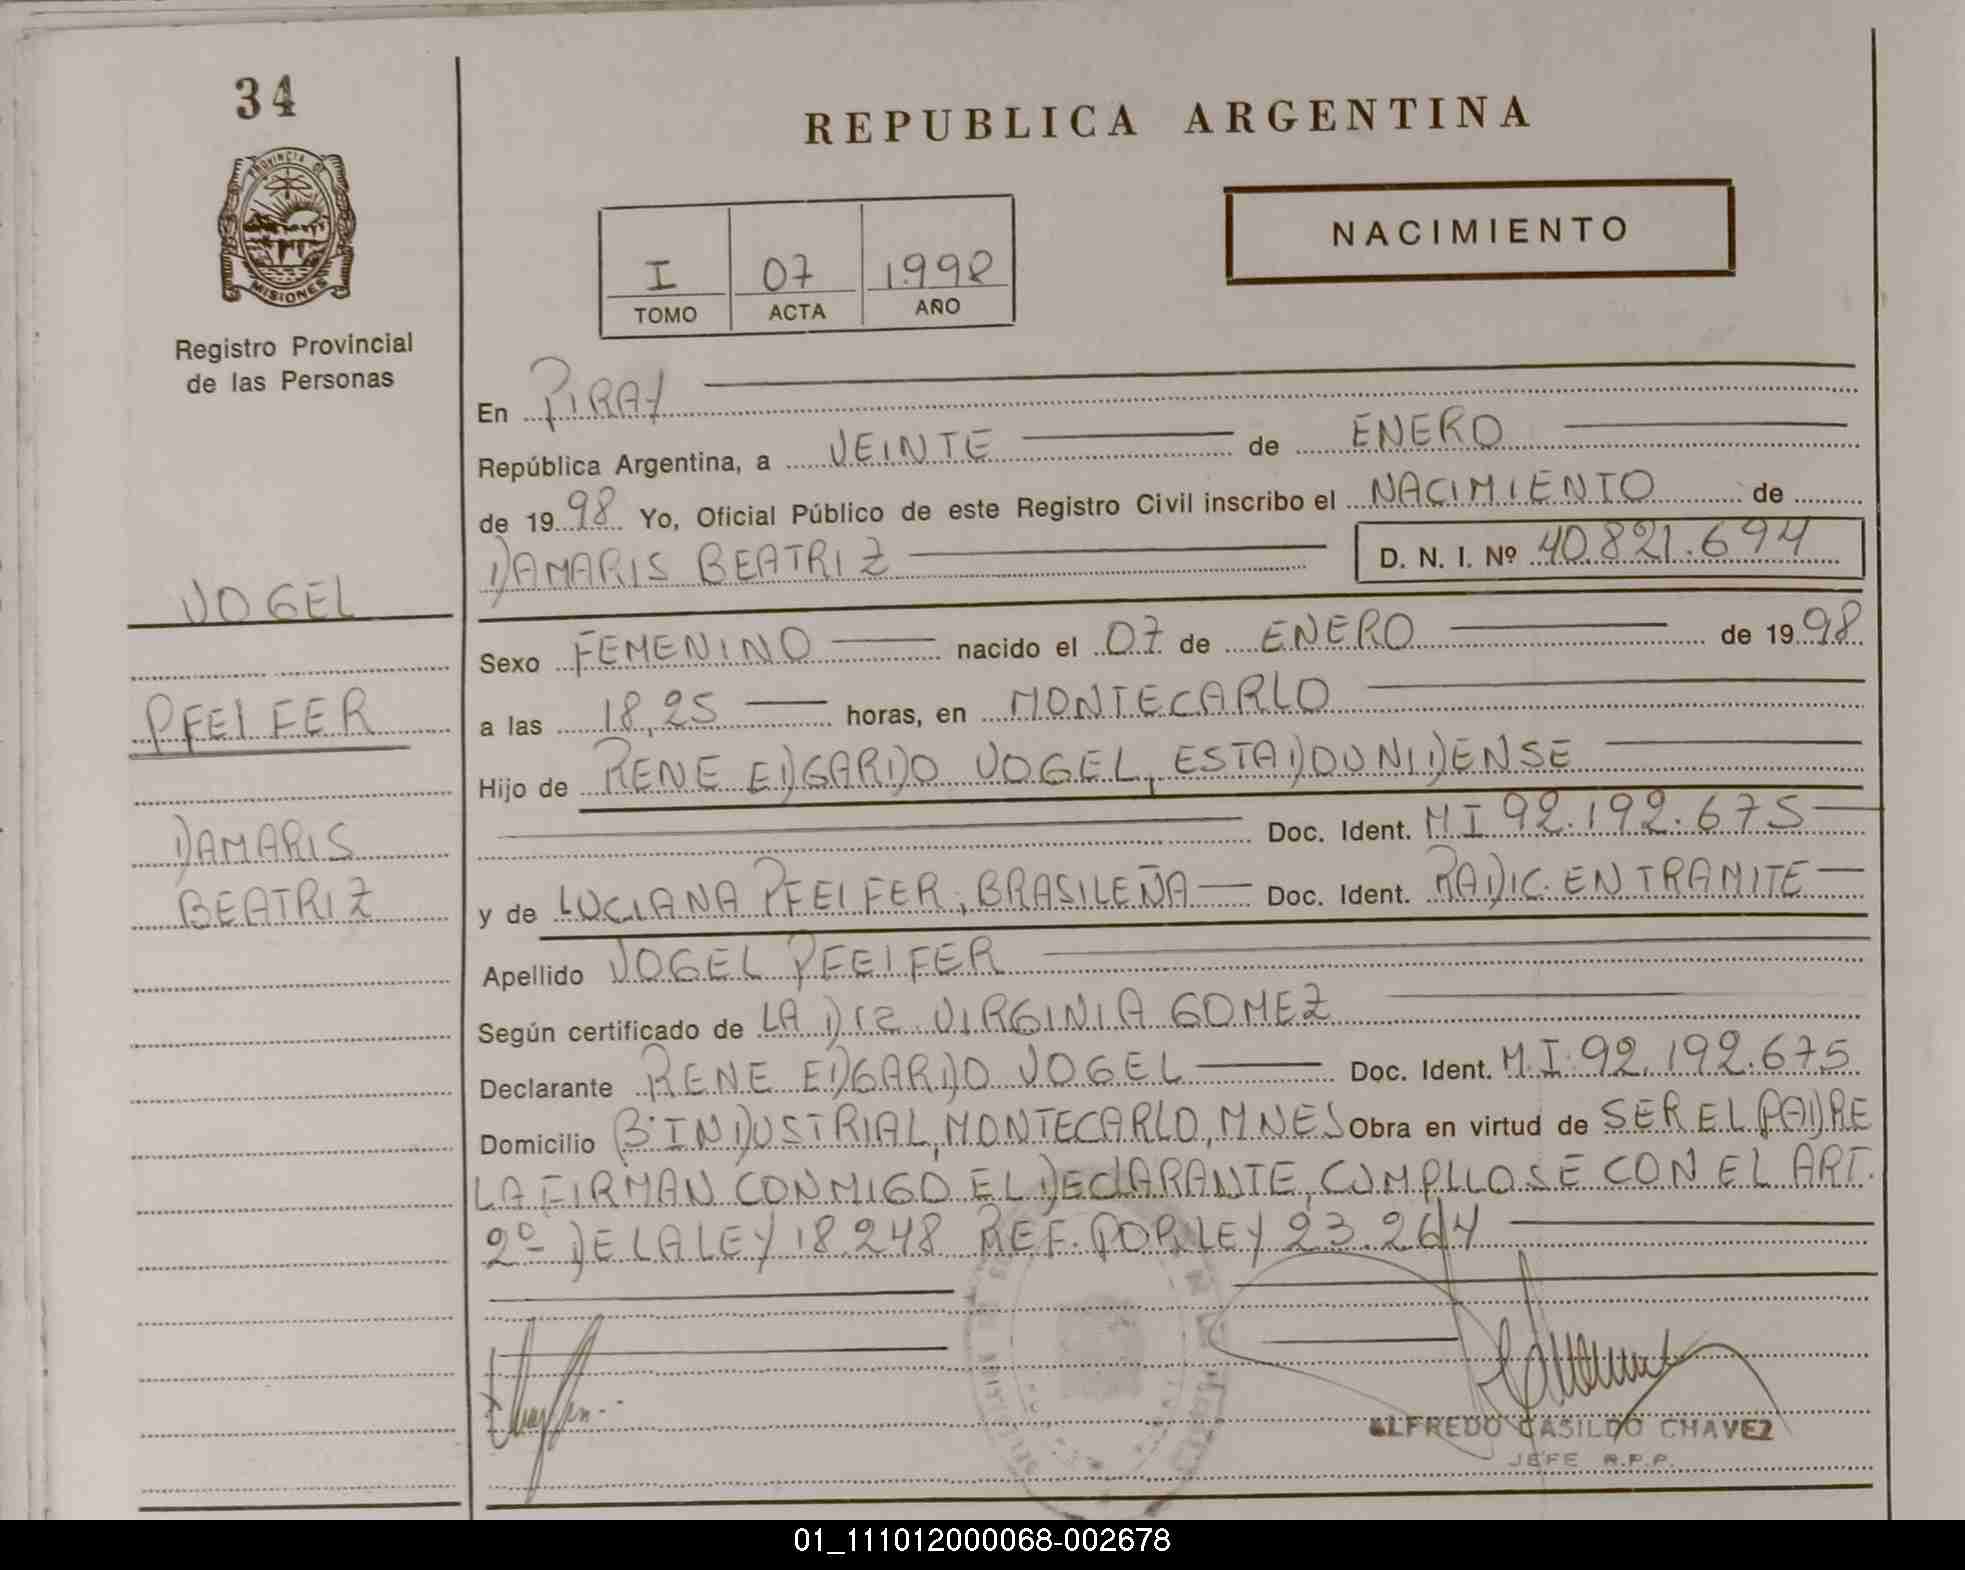 34
PROVINCIA DE
MISIONES
Registro Provincial
de las Personas
VOGEL
PFEIFER
DAMARIS
BEATRIZ
REPUBLICA ARGENTINA
NACIMIENTO
I 07 1.998
TOMO ACTA AÑO
En PIRAY
República Argentina, a VEINTE de ENERO
de 1998 Yo, Oficial Público de este Registro Civil inscribo el NACIMIENTO de
DAMARIS BEATRIZ D. N. I. Nº 40.821.694
Sexo FEMENINO nacido el 07 de ENERO de 1998
a las 18,25 horas, en MONTECARLO
Hijo de RENE EDGARDO VOGEL, ESTADOUNIDENSE
Doc. Ident. M I 92.192.675
y de LUCIANA PFEIFER, BRASILEÑA Doc. Ident. RADIC. EN TRAMITE
Apellido VOGEL PFEIFER
Según certificado de LA VIRGINIA GOMEZ
Declarante RENE EDGARDO VOGEL Doc. Ident. M.I. 92.192.675
Domicilio Bº INDUSTRIAL, MONTECARLO, MNES Obra en virtud de SER EL PADRE
LA FIRMAN CONMIGO EL DECLARANTE, CUMPLIOSE CON EL ART.
2º DE LA LEY 18.248 REF. POR LEY 23.264
ALFREDO CASILDO CHAVEZ
JEFE R.P.P.
01_111012000068-002678